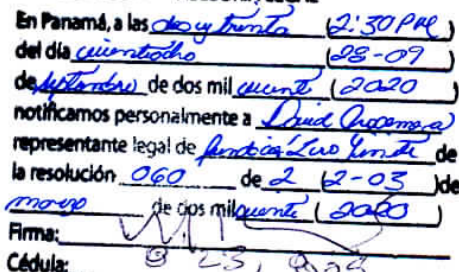 En Panamá, a las dos y treinta (2:30 PM)
del día veintiocho (28-09)
de septiembre de dos mil veinte (2020)
notificamos personalmente a David
representante legal de de
la resolución 060 de 2 (2-03) de
marzo de dos mil veinte (2020)
Firma:
Cédula: 8